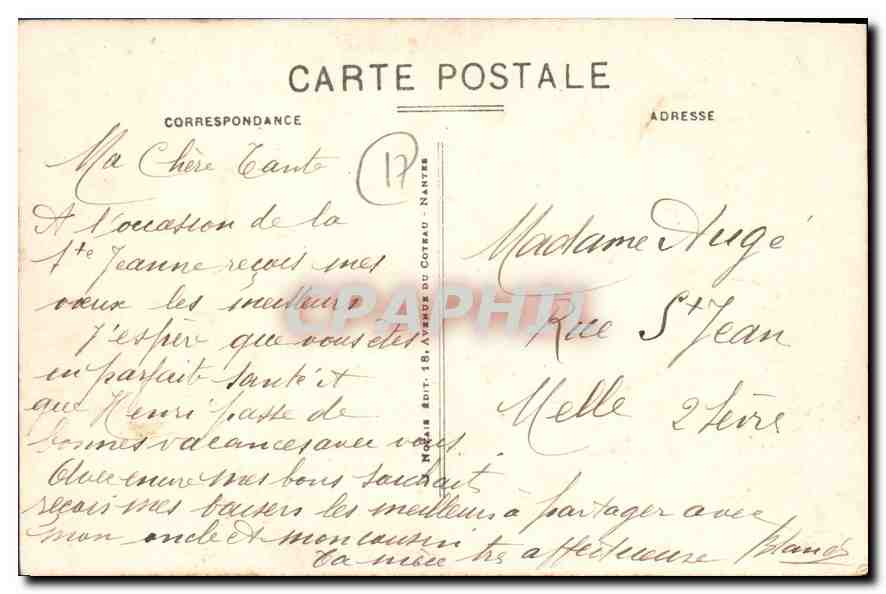 CARTE POSTALE
CORRESPONDANCE
ADRESSE
17
Ma Chère Tante
A l'occasion de la
Ste Jeanne reçois mes
vœux les meilleurs
J'espère que vous êtes
en parfait santé et
que Henri passe de
bonnes vacances avec vous.
Avec encore mes bons souhaits
reçois mes baisers les meilleurs à partager avec
mon oncle et mon cousin
Ta nièce très affectueuse
Madame Augé
Rue St Jean
Melle 2 Sèvres
NOZAIS ÉDIT. 18, AVENUE DU COTEAU - NANTES
CPAPHIL